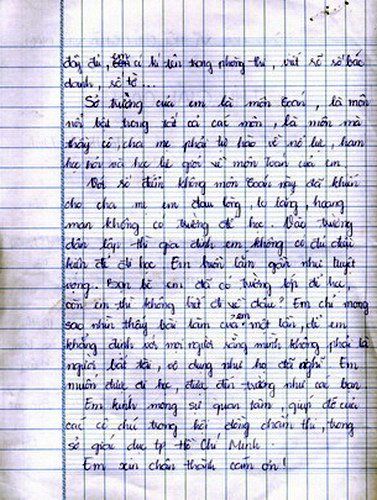 đầy đủ, em có kí tên trong phòng thi, viết rõ số báo
danh, số tờ...
Sở trường của em là môn toán, là môn
nổi bật trong tất cả các môn, là môn mà
thầy cô, cha mẹ phải tự hào về nỗ lực, ham
học hỏi và học lực giỏi về môn toán của em.
Với số điểm không môn toán này đã khiến
cho cha mẹ em đau lòng, lo lắng, hoang
mang không có trường để học. Vào trường
dân lập thì gia đình em không có đủ điều
kiện để đi học. Em buồn lắm gần như tuyệt
vọng. Bạn bè em đã có trường lớp để học,
còn em thì không biết đi về đâu? Em chỉ mong
sao nhìn thấy bài làm của em một lần, để em
khẳng định với mọi người rằng mình không phải là
người bất tài, vô dụng như họ đã nghĩ. Em
muốn được đi học, được đến trường như các bạn.
Em kính mong sự quan tâm, giúp đỡ của
các cô chú trong hội đồng chấm thi, trong
sở giáo dục tp Hồ Chí Minh.
Em xin chân thành cảm ơn!